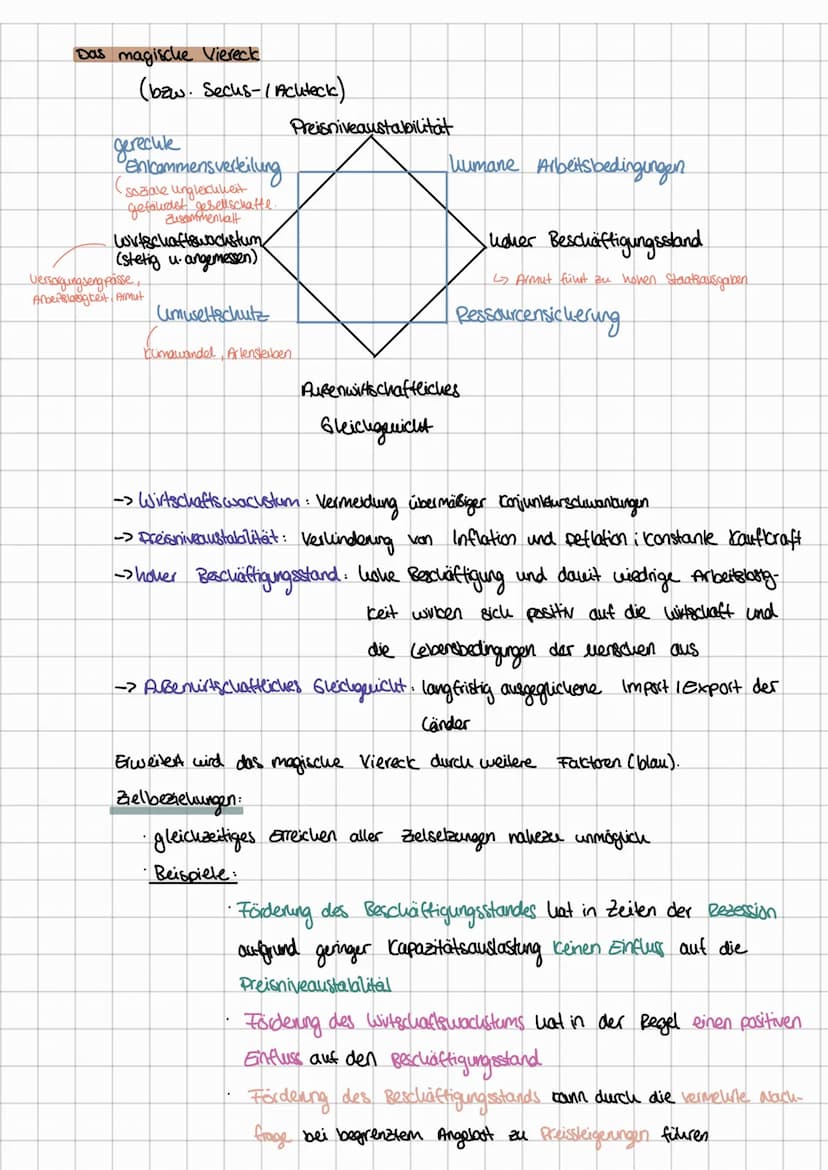 Das magische Viereck
(bzw. Sechs-/Achteck)
Preisniveaustabilität
gerechte
Einkommensverteilung
humane Arbeitsbedingungen
(soziale Ungleichheit
gefährdet gesellschaftl.
Zusammenhalt
Wirtschaftswachstum
(stetig u. angemessen)
hoher Beschäftigungsstand
↳ Armut führt zu hohen Staatsausgaben
Versorgungsengpässe,
Arbeitslosigkeit, Armut
Umweltschutz
Ressourcensicherung
Klimawandel, Artensterben
Außenwirtschaftliches
Gleichgewicht
-> Wirtschaftswachstum: Vermeidung übermäßiger Konjunkturschwankungen
-> Preisniveaustabilität: Verhinderung von Inflation und Deflation; konstante Kaufkraft
-> hoher Beschäftigungsstand: hohe Beschäftigung und damit niedrige Arbeitslosig-
keit wirken sich positiv auf die Wirtschaft und
die Lebensbedingungen der Menschen aus
-> Außenwirtschaftliches Gleichgewicht: langfristig ausgeglichene Import/Export der
Länder
Erweitert wird das magische Viereck durch weitere Faktoren (blau).
Zielbeziehungen:
· gleichzeitiges Erreichen aller Zielsetzungen nahezu unmöglich
· Beispiele:
· Förderung des Beschäftigungsstandes hat in Zeiten der Rezession
aufgrund geringer Kapazitätsauslastung keinen Einfluss auf die
Preisniveaustabilität
· Förderung des Wirtschaftswachstums hat in der Regel einen positiven
Einfluss auf den Beschäftigungsstand
· Förderung des Beschäftigungsstands kann durch die vermehrte Nach-
frage bei begrenztem Angebot zu Preissteigerungen führen